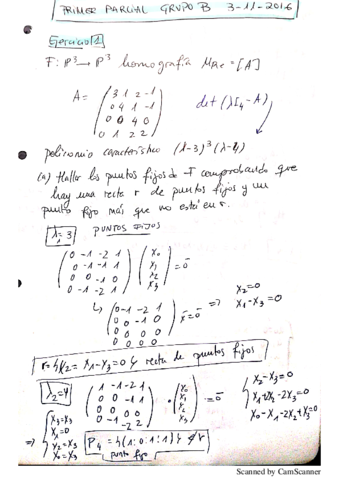 PRIMER PARCIAL GRUPO B 3-11-2016
Ejercicio 1
F: P³ → P³ homografía M_Rc = [A]
A = (3 1 2 -1
0 4 1 -1
0 0 4 0
0 1 2 2)
det(λI₄ - A)
polinomio característico (λ-3)³(λ-4)
(a) Hallar los puntos fijos de F comprobando que
hay una recta r de puntos fijos y un
punto fijo más que no esté en r.
λ₁ = 3 PUNTOS FIJOS
(0 -1 -2 1
0 -1 -1 1
0 0 -1 0
0 -1 -2 1) (x₀ x₁ x₂ x₃) = 0̄
↳ (0 -1 -2 1
0 0 -1 0
0 0 0 0
0 0 0 0) x̄ = 0̄ ⇒ x₂=0
x₁-x₃=0
r = {x₂ = x₁-x₃=0} recta de puntos fijos
λ₂=4 (1 -1 -2 1
0 0 -1 1
0 0 0 0
0 -1 -2 2) · (x₀ x₁ x₂ x₃) = 0̄
x₂-x₃=0
x₀-x₁-2x₂+x₃=0
⇒ x₃=x₃
x₁=0
x₂=x₃
x₀=x₃
P₄ = {(1:0:1:1)} ∉ r
punto fijo
Scanned by CamScanner